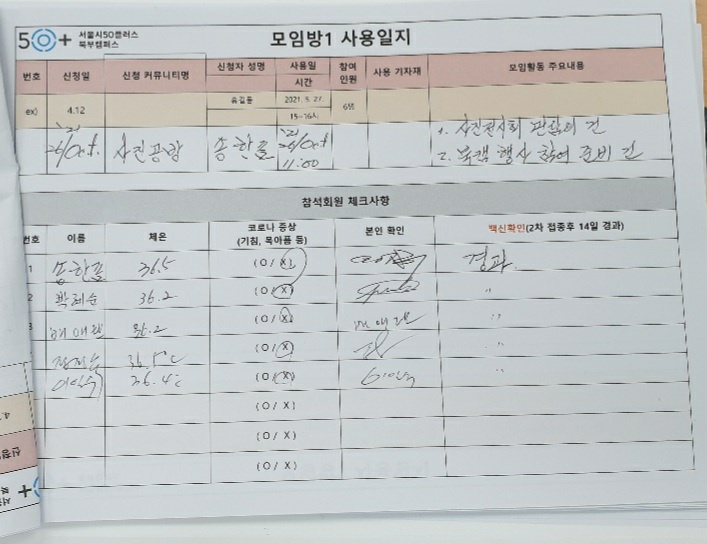 50+ 서울시50플러스
북부캠퍼스
모임방1 사용일지
번호 신청일 신청 커뮤니티명 신청자 성명 사용일 시간 참여 인원 사용 기자재 모임활동 주요내용
ex) 4.12 유길동 2021. 5. 27. 15~16시 6명
'21 26/Oct. 사진공방 송한표 '21 26/Oct 11:00
1. 사진전시회 관람의 건
2. 북캠 행사 참여 준비 건
참석회원 체크사항
번호 이름 체온 코로나 증상 (기침, 목아픔 등) 본인 확인 백신확인(2차 접종후 14일 경과)
1 송한표 36.5 (O / X) 경과
2 박혜순 36.2 (O / X) "
3 36.2 (O / X) "
(O / X) "
36.4℃ (O / X) "
(O / X)
(O / X)
(O / X)